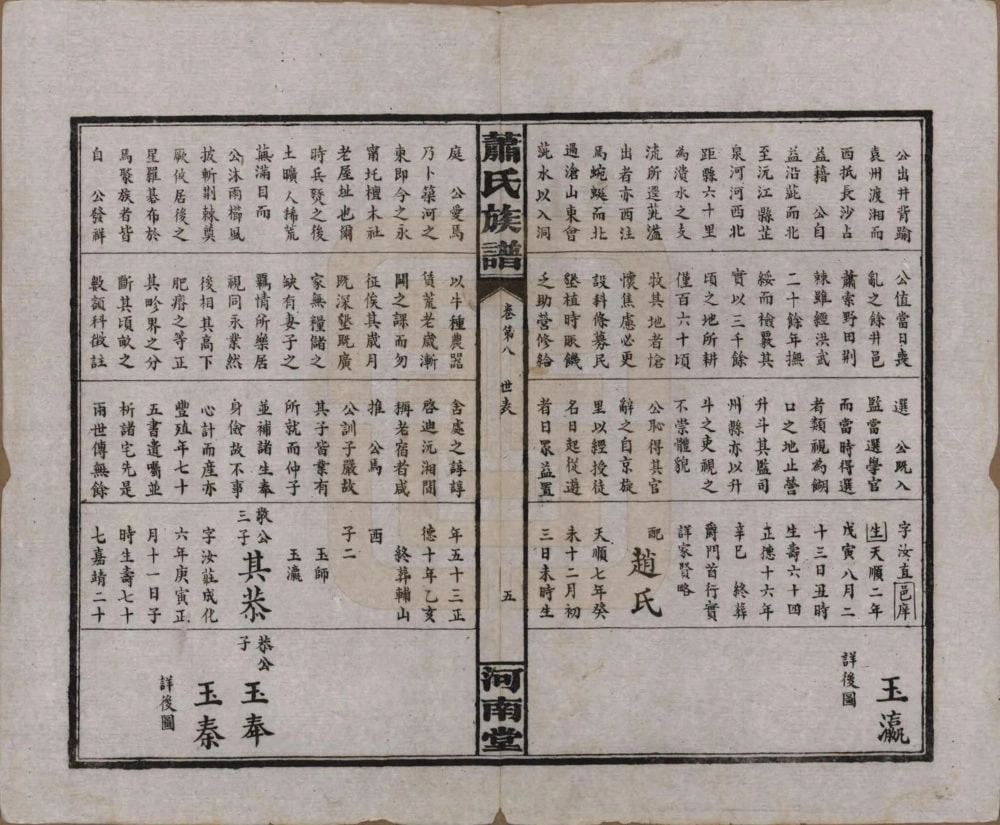 公出井背踰
袁州渡湘而
西抵長沙占
益籍　公自
益沿茈而北
至沅江縣芷
泉河河西北
距縣六十里
為濆水之支
流所逕茈溢
出者亦西注
馬蜿蜒而北
過滄山東會
茈水以入洞
公值當日喪
亂之餘井邑
蕭索野田荆
棘雖經洪武
二十餘年撫
綏而檢覈其
實以三千餘
頃之地所耕
僅百六十頃
牧其地者愴
懷焦慮必更
設科條募民
墾植時賑饑
乏助營修給
選　公既入
監當選學官
而當時得選
者類視為餬
口之地止營
升斗其監司
州縣亦以升
斗之吏視之
不崇體貌
公恥得其官
辭之自京旋
里以經授徒
名日起從遊
者日衆益置
字汝直邑庠
生天順二年
戊寅八月二
十三日丑時
生壽六十四
正德十六年
辛巳　終葬
爵門首行實
詳家賢略
配　趙氏
天順七年癸
未十二月初
三日未時生
玉瀛
詳後圖
蕭氏族譜
卷第八　世表
五
河南堂
庭　公愛馬
乃卜築河之
東即今之永
甯圫檀木社
老屋址也爾
時兵燹之後
土曠人稀荒
蕪滿目而
公沐雨櫛風
披斬荆棘奠
厥攸居後之
星羅碁布於
馬聚族者皆
自　公發祥
以牛種農器
賃荒老歲漸
闢之課而勿
征俟其歲月
既深墾既廣
家無糧儲之
缺有妻子之
羈情所樂居
視同永業然
後相其高下
肥瘠之等正
其畛界之分
斷其頃畝之
數額科徵註
舍處之諄諄
啓迪沅湘間
稱老宿者咸
推　公馬
公訓子嚴故
其子皆業有
所就而仲子
並補諸生奉
身儉故不事
心計而產亦
豐殖年七十
五書遺囑並
析諸宅先是
兩世傳無餘
年五十三正
德十年乙亥
終葬輔山
西
子二
玉師
玉瀛
敬公
三子　其恭
字汝莊成化
六年庚寅正
月十一日子
時生壽七十
七嘉靖二十
恭公
子　玉奉
玉秦
詳後圖